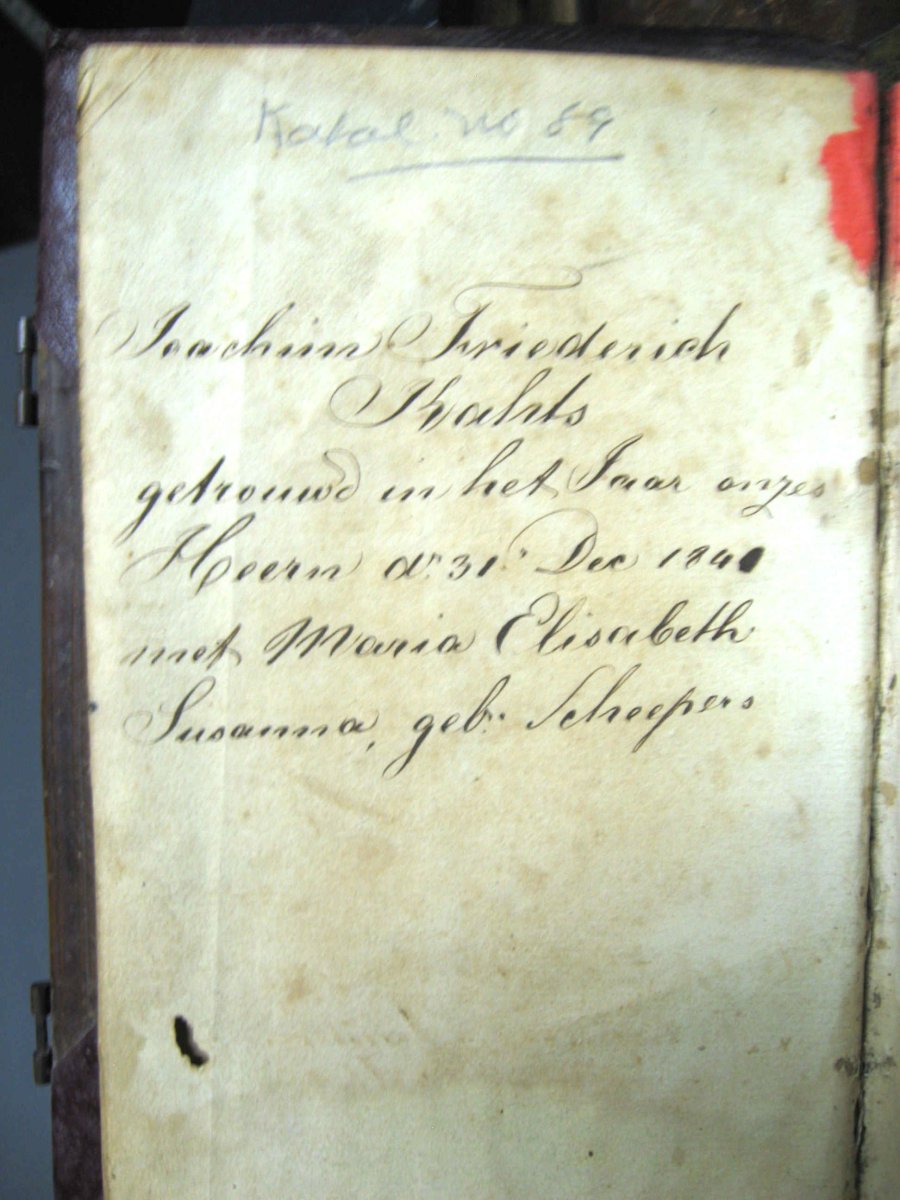 Katal. No 89
Joachim Friederich
Kahts
getrouwd in het Jaar onzes
Heern dn 31n Dec 184
met Maria Elisabeth
Susanna, gebn Scheepers